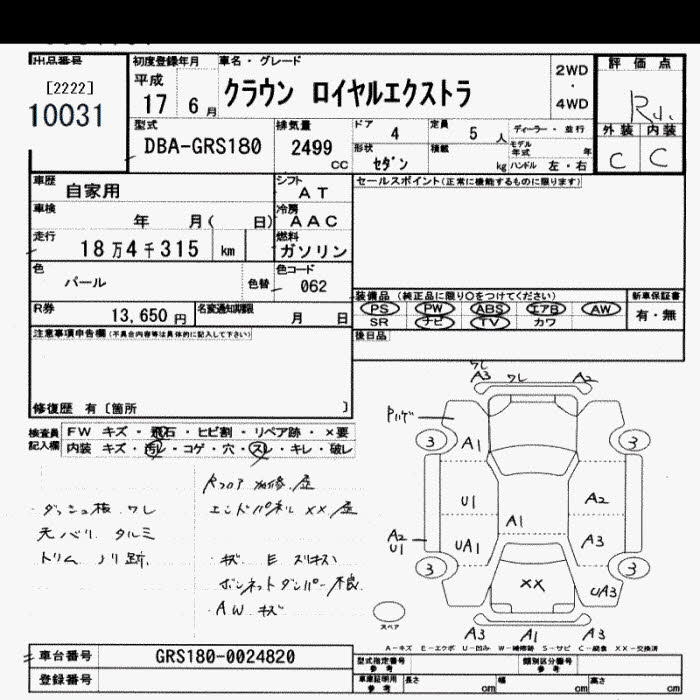 出品番号
[2222]
10031
初度登録年月
平成
17 6 月
車名・グレード
クラウン ロイヤルエクストラ
2WD
・
4WD
評価点
R
外装 内装
C C
型式
DBA-GRS180
排気量
2499
CC
ドア 4
定員 5 人
ディーラー・並行
形状
セダン
積載 kg
モデル年式 年
ハンドル 左・右
車歴
自家用
シフト
AT
セールスポイント(正常に機能するものに限ります)
車検
年 月( 日)
冷房
AAC
走行
18万4千315 km
燃料
ガソリン
色
パール
色替
色コード
062
R券
13,650 円
名変通知期限
月 日
装備品(純正品に限り○をつけてください)
PS PW ABS エアB AW
SR ナビ TV カワ
新車保証書
有・無
後日品
注意事項申告欄(不具合内容等は具体的に記入して下さい)
修復歴 有〔箇所 〕
検査員記入欄
FW キズ・飛石・ヒビ割・リペア跡・×要
内装 キズ・汚レ・コゲ・穴・スレ・キレ・破レ
ダッシュ板 ワレ
天バリ タルミ
トリム ノリ跡
エンドパネル XX 歪
キズ E スリキズ
ボンネットダンパー不良
・AW キズ
ワレ
A3 ワレ A2
Pハゲ
3 A1 3
U1 A2
A1
A2
U1
UA1 A3
3 3
XX UA3
スペア
A3 A1 A3
A-キズ E-エクボ U-凹み W-補修跡 S-サビ C-腐食 XX-交換済
車台番号
GRS180-0024820
登録番号
型式指定番号
参考
類別区分番号
参考
車庫証明用
参考
長さ cm
幅 cm
高さ cm